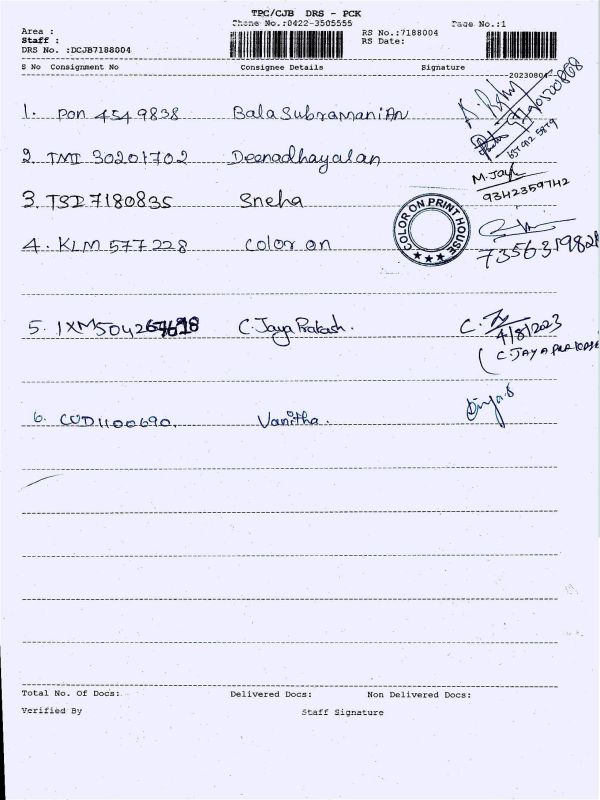 TPC/CJB DRS - PCK
Phone No.:0422-3505555
Page No.:1
Area :
Staff :
DRS No. :DCJB7188004
RS No.:7188004
RS Date:
S No Consignment No Consignee Details Signature
20230804
1. PON 4549838 Balasubramanian
2. TMI 30201702 Deenadhayalan
651 912 5879
M. Jay
3. TSD7180835 Sneha 9342359742
COLOR ON PRINT HOUSE
4. KLM 577228 Color on 7356319828
5. IXM504267698 C. Jaya Prakash.
4/8/2023
(C. JAYA PRAKASH
6. COD1100690. Vanitha.
Total No. Of Docs: Delivered Docs: Non Delivered Docs:
Verified By Staff Signature